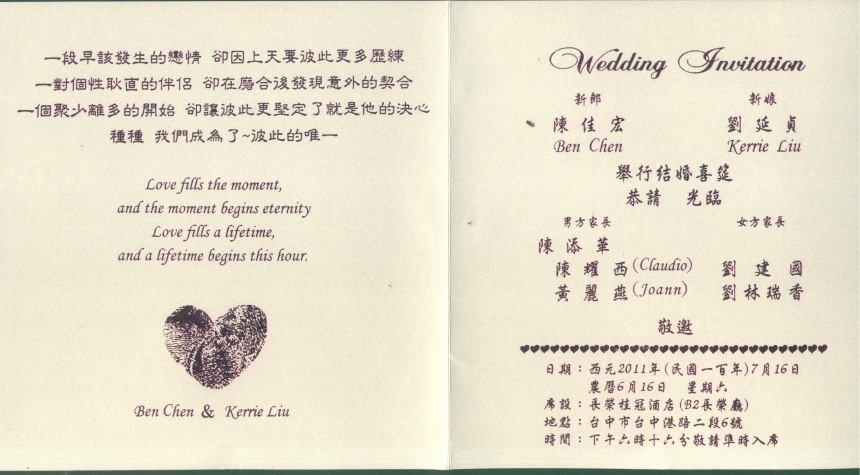 一段早該發生的戀情 卻因上天要彼此更多歷練
一對個性耿直的伴侶 卻在磨合後發現意外的契合
一個聚少離多的開始 卻讓彼此更堅定了就是他的決心
種種 我們成為了~彼此的唯一
Love fills the moment,
and the moment begins eternity
Love fills a lifetime,
and a lifetime begins this hour.
Ben Chen & Kerrie Liu
Wedding Invitation
新郎 新娘
陳佳宏 劉延貞
Ben Chen Kerrie Liu
舉行結婚喜筵
恭請 光臨
男方家長 女方家長
陳添華
陳耀西(Claudio) 劉建國
黃麗燕(Joann) 劉林瑞香
敬邀
日期：西元2011年(民國一百年)7月16日
農曆6月16日 星期六
席設：長榮桂冠酒店(B2長榮廳)
地點：台中市台中港路二段6號
時間：下午六時十六分敬請準時入席